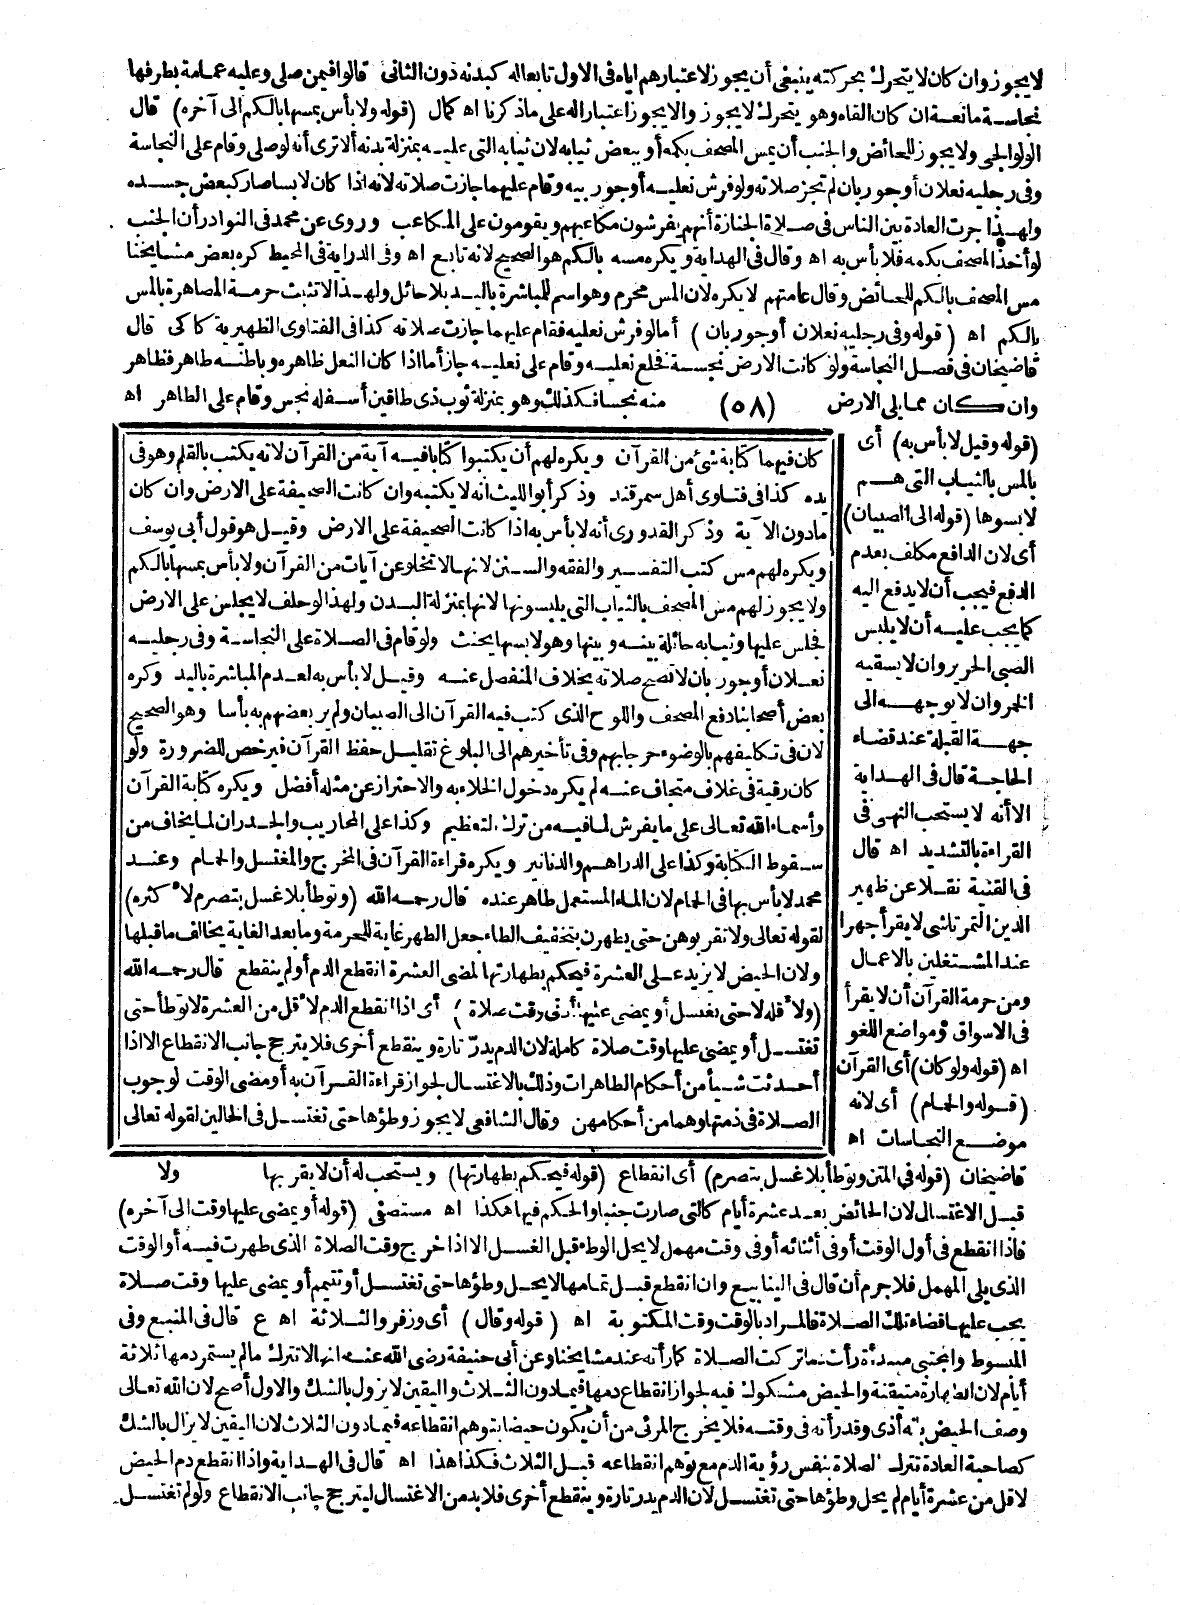 لا يجوز وان كان لا يتحرك بحركته ينبغي أن يجوز لاعتبارهم اياه في الاول تابعا له كبدنه دون الثاني قالوا فيمن صلى وعليه عمامة بطرفها
نجاسة مانعة ان كان القاه وهو يتحرك لا يجوز والا يجوز اعتبارا له على ماذكرنا اه كمال (قوله ولا بأس بمسها بالكم الى آخره) قال
الولوالجي ولا يجوز للحائض والجنب أن يمس المصحف بكمه أو ببعض ثيابه لان ثيابه التي عليه بمنزلة بدنه ألا ترى أنه لو صلى وقام على النجاسة
وفي رجليه نعلان أو جوربان لم تجز صلاته ولو فرش نعليه أو جوربيه وقام عليهما جازت صلاته لانه اذا كان لابسا صار كبعض جسده
ولهذا جرت العادة بين الناس في صلاة الجنازة أنهم يفرشون مكاعبهم ويقومون على المكاعب وروى عن محمد في النوادر أن الجنب
لو أخذ المصحف بكمه فلا بأس به اه وقال في الهداية ويكره مسه بالكم هو الصحيح لانه تابع اه وفي الدراية في المحيط كره بعض مشايخنا
مس المصحف بالكم للحائض وقال عامتهم لا يكره لان المس محرم وهو اسم للمباشرة باليد بلا حائل ولهذا لا تثبت حرمة المصاهرة بالمس
بالكم اه (قوله وفي رجليه نعلان أو جوربان) أما لو فرش نعليه فقام عليهما جازت صلاته كذا في الفتاوى الظهيرية كاكى قال
قاضيخان في فصل النجاسة ولو كانت الارض نجسة فخلع نعليه وقام على نعليه جاز أما اذا كان النعل ظاهره وباطنه طاهر فظاهر
وان كان مما يلي الارض (٥٨) منه نجسا فكذلك وهو بمنزلة ثوب ذي طاقين أسفله نجس وقام على الطاهر اه
(قوله وقيل لا بأس به) أى
بالمس بالثياب التي هم
لابسوها (قوله الى الصبيان)
أى لان الدافع مكلف بعدم
الدفع فيجب أن لا يدفع اليه
كما يجب عليه أن لا يلبس
الصبي الحرير وان لا يسقيه
الخمر وان لا يوجهه الى
جهة القبلة عند قضاء
الحاجة قال في الهداية
الا أنه لا يستحب النهى في
القراءة بالتشديد اه قال
في القنية نقلا عن ظهير
الدين التمرتاشي لا يقرأ جهرا
عند المشتغلين بالاعمال
ومن حرمة القرآن أن لا يقرأ
في الاسواق ومواضع اللغو
اه (قوله ولو كان) أى القرآن
(قوله والحمام) أى لانه
موضع النجاسات اه
كان فيهما كتابة شئ من القرآن ويكره لهم أن يكتبوا كتابا فيه آية من القرآن لانه يكتب بالقلم وهو في
يده كذا في فتاوى أهل سمرقند وذكر أبو الليث انه لا يكتبه وان كانت الصحيفة على الارض وان كان
مادون الآية وذكر القدوري أنه لا بأس به اذا كانت الصحيفة على الارض وقيل هو قول أبي يوسف
ويكره لهم مس كتب التفسير والفقه والسنن لانها لا تخلو عن آيات من القرآن ولا بأس بمسها بالكم
ولا يجوز لهم مس المصحف بالثياب التي يلبسونها لانها بمنزلة البدن ولهذا لو حلف لا يجلس على الارض
فجلس عليها وثيابه حائلة بينه وبينها وهو لابسها يحنث ولو قام في الصلاة على النجاسة وفي رجليه
نعلان أو جوربان لا تصح صلاته بخلاف المنفصل عنه وقيل لا بأس به لعدم المباشرة باليد وكره
بعض أصحابنا دفع المصحف واللوح الذي كتب فيه القرآن الى الصبيان ولم ير بعضهم به بأسا وهو الصحيح
لان في تكليفهم بالوضوء حرجا بهم وفي تأخيرهم الى البلوغ تقليل حفظ القرآن فيرخص للضرورة ولو
كان رقية في غلاف متجاف عنه لم يكره دخول الخلاء به والاحتراز عن مثله أفضل ويكره كتابة القرآن
وأسماء الله تعالى على ما يفرش لما فيه من ترك التعظيم وكذا على المحاريب والجدران لما يخاف من
سقوط الكتابة وكذا على الدراهم والدنانير ويكره قراءة القرآن في المخرج والمغتسل والحمام وعند
محمد لا بأس بها في الحمام لان الماء المستعمل طاهر عنده قال رحمه الله (وتوطأ بلا غسل بتصرم لاكثره)
لقوله تعالى ولا تقربوهن حتى يطهرن بتخفيف الطاء جعل الطهر غاية للحرمة وما بعد الغاية يخالف ما قبلها
ولان الحيض لا يزيد على العشرة فيحكم بطهارتها لمضى العشرة انقطع الدم أو لم ينقطع قال رحمه الله
(ولاقله لا حتى تغتسل أو يمضى عليها أدنى وقت صلاة) أى اذا انقطع الدم لاقل من العشرة لا توطأ حتى
تغتسل أو يمضى عليها وقت صلاة كاملة لان الدم يدر تارة وينقطع أخرى فلا يترجح جانب الانقطاع الا اذا
أحدثت شيأ من أحكام الطاهرات وذلك بالاغتسال لجواز قراءة القرآن به أو مضى الوقت لوجوب
الصلاة في ذمتها وهما من أحكامهن وقال الشافعي لا يجوز وطؤها حتى تغتسل في الحالين لقوله تعالى
ولا
قاضيخان (قوله في المتن وتوطأ بلا غسل بتصرم) أى انقطاع (قوله فيحكم بطهارتها) ويستحب له أن لا يقربها
قبل الاغتسال لان الحائض بعد عشرة أيام كالتي صارت جنبا والحكم فيها هكذا اه مستصفى (قوله أو يمضى عليها وقت الى آخره)
فاذا انقطع في أول الوقت أو في أثنائه أو في وقت مهمل لا يحل الوطء قبل الغسل الا اذا خرج وقت الصلاة الذي طهرت فيه أو الوقت
الذي يلي المهمل فلا جرم أن قال في الينابيع وان انقطع قبل تمامها لا يحل وطؤها حتى تغتسل أو تتيمم أو يمضى عليها وقت صلاة
يجب عليها قضاء تلك الصلاة فالمراد بالوقت وقت المكتوبة اه (قوله وقال) أى وزفر والثلاثة اه ع قال في المنبع وفي
المبسوط والمجتبى مبتدأة رأت دما تركت الصلاة كما رأته عند مشايخنا وعن أبي حنيفة رضي الله عنه انها لا تترك ما لم يستمر دمها ثلاثة
أيام لان الطهارة متيقنة والحيض مشكوك فيه لجواز انقطاع دمها فيما دون الثلاث واليقين لا يزول بالشك والاول أصح لان الله تعالى
وصف الحيض بانه أذى وقد رأته في وقته فلا يخرج المرئى من أن يكون حيضا بتوهم انقطاعه فيما دون الثلاث لان اليقين لا يزال بالشك
كصاحبة العادة تترك الصلاة بنفس رؤية الدم مع توهم انقطاعه قبل الثلاث فكذا هذا اه قال في الهداية واذا انقطع دم الحيض
لاقل من عشرة أيام لم يحل وطؤها حتى تغتسل لان الدم يدر تارة وينقطع أخرى فلا بد من الاغتسال ليترجح جانب الانقطاع ولو لم تغتسل